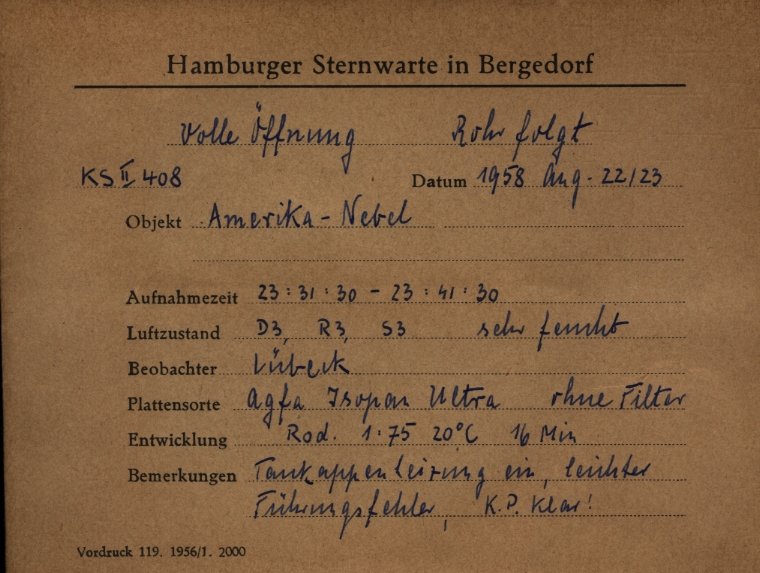 Hamburger Sternwarte in Bergedorf
Volle Öffnung Rohr folgt
KS II 408 Datum 1958 Aug. 22/23
Objekt Amerika-Nebel
Aufnahmezeit 23:31:30 - 23:41:30
Luftzustand D3, R3, S3 sehr feucht
Beobachter Lübeck
Plattensorte Agfa Isopan Ultra ohne Filter
Entwicklung Rod. 1:75 20°C 16 Min
Bemerkungen Taukappenheizung ein, leichter
Führungsfehler, K.P. klar!
Vordruck 119. 1956/1. 2000